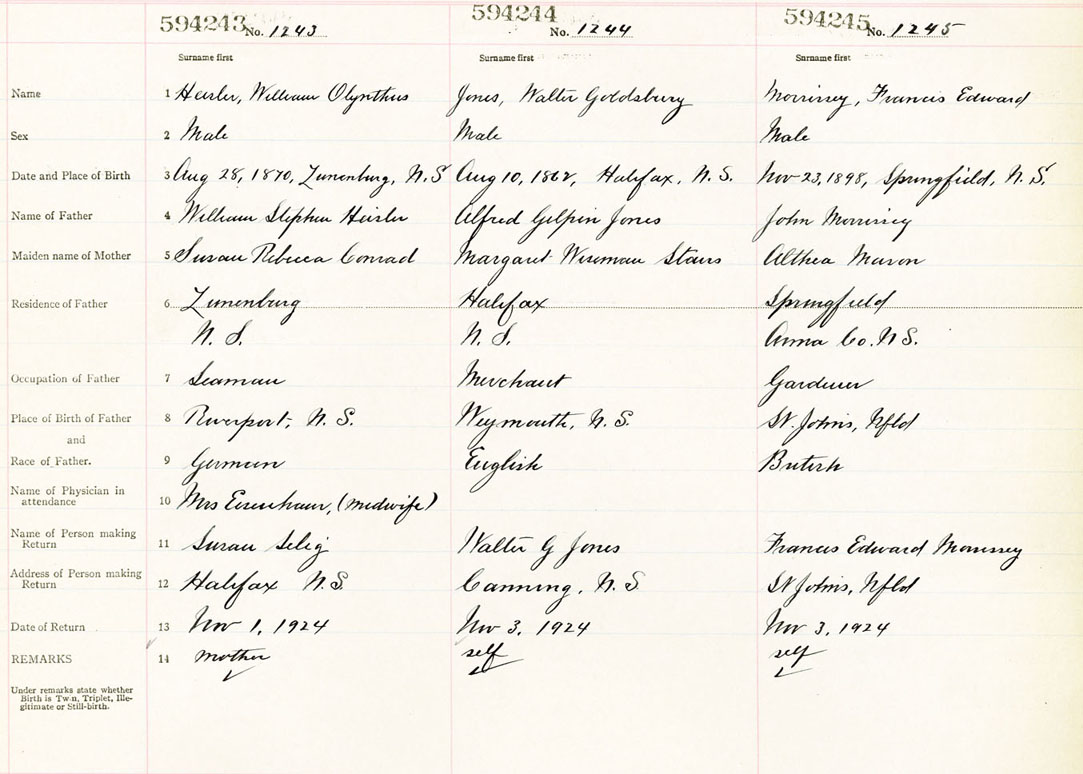 594243 No. 1243 594244 No. 1244 594245 No. 1245
Surname first Surname first Surname first
Name 1 Heisler, William Olynthus Jones, Walter Goldsbury Morrissey, Francis Edward
Sex 2 Male Male Male
Date and Place of Birth 3 Aug 28, 1870, Lunenburg, N.S Aug 10, 1862, Halifax, N.S. Nov 23, 1898, Springfield, N.S.
Name of Father 4 William Stephen Heisler Alfred Gilpin Jones John Morrissey
Maiden name of Mother 5 Susan Rebecca Conrad Margaret Wiseman Stairs Althea Mason
Residence of Father 6 Lunenburg Halifax Springfield
N. S. N. S. Anna Co. N S.
Occupation of Father 7 Seaman Merchant Gardener
Place of Birth of Father 8 Riverport, N. S. Weymouth, N. S. St. Johns, Nfld
and
Race of Father. 9 German English British
Name of Physician in
attendance 10 Mrs Eisenhaur, (midwife)
Name of Person making
Return 11 Susan Selig Walter G Jones Francis Edward Morrissey
Address of Person making
Return 12 Halifax N.S. Canning, N. S St Johns, Nfld
Date of Return 13 Nov 1, 1924 Nov 3, 1924 Nov 3, 1924
REMARKS 14 mother self self
Under remarks state whether
Birth is Twin, Triplet, Ille-
gitimate or Still-birth.